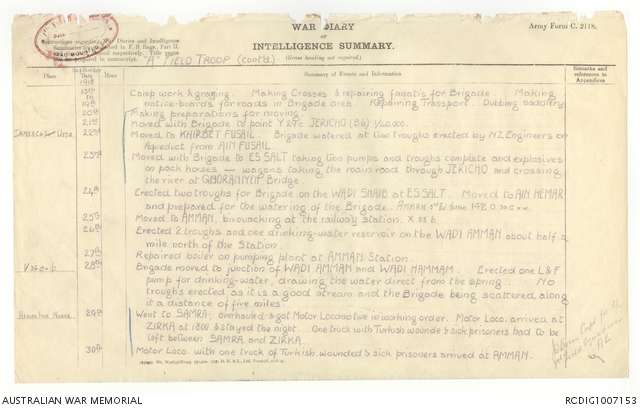 WAR DIARY
OF
INTELLIGENCE SUMMARY.
Army Form C. 2118.
(Erase heading not required).
"A" FIELD TROOP (cont'd.)
Place
Date
Hour
Summary of Events and Information
Remarks and
references to
Appendices
1918
18th
Camp work & grazing. Making Crosses & repairing fanatis for Brigade. Making
19th
notice-boards for roads in Brigade area. Repairing Transport. Dubbing saddlery.
20th
Making preparations for moving.
21st
Moved with Brigade to point Y27c JERICHO
22nd
Moved to KHIRBET FUSAIL. Brigade watered at two troughs erected by N.Z. Engineers on
Aqueduct from AIN FUSAIL
23rd
Moved with Brigade to ES SALT taking two pumps and troughs complete and explosives
on pack horses — wagons taking the main road through JERICHO and crossing
the river at GHORANIYAH Bridge.
24th
Erected two troughs for Brigade on the WADI SHAIB at ES SALT. Moved to AIN HEMAR
and prepared for the watering of the Brigade.
25th
Moved to AMMAN, bivouacking at the railway station.
26th
Erected 2 troughs and one drinking-water reservoir on the WADI AMMAN about half a
mile north of the Station.
27th
Repaired boiler on pumping plant at AMMAN Station.
28th
Brigade moved to junction of WADI AMMAN and WADI HAMMAM. Erected one L & F
pump for drinking-water, drawing the water direct from the spring. No
troughs erected as it is a good stream and the Brigade being scattered along
it a distance of five miles.
29th
Went to SAMRA, overhauled & got Motor Locomotive in working order. Motor Loco. arrived at
ZIRKA at 1800 & stayed the night. One truck with Turkish wounded & sick prisoners had to be
left between SAMRA and ZIRKA.
30th
Motor Loco. with one truck of Turkish wounded & sick prisoners arrived at AMMAN.
AUSTRALIAN WAR MEMORIAL
RCDIG1007153